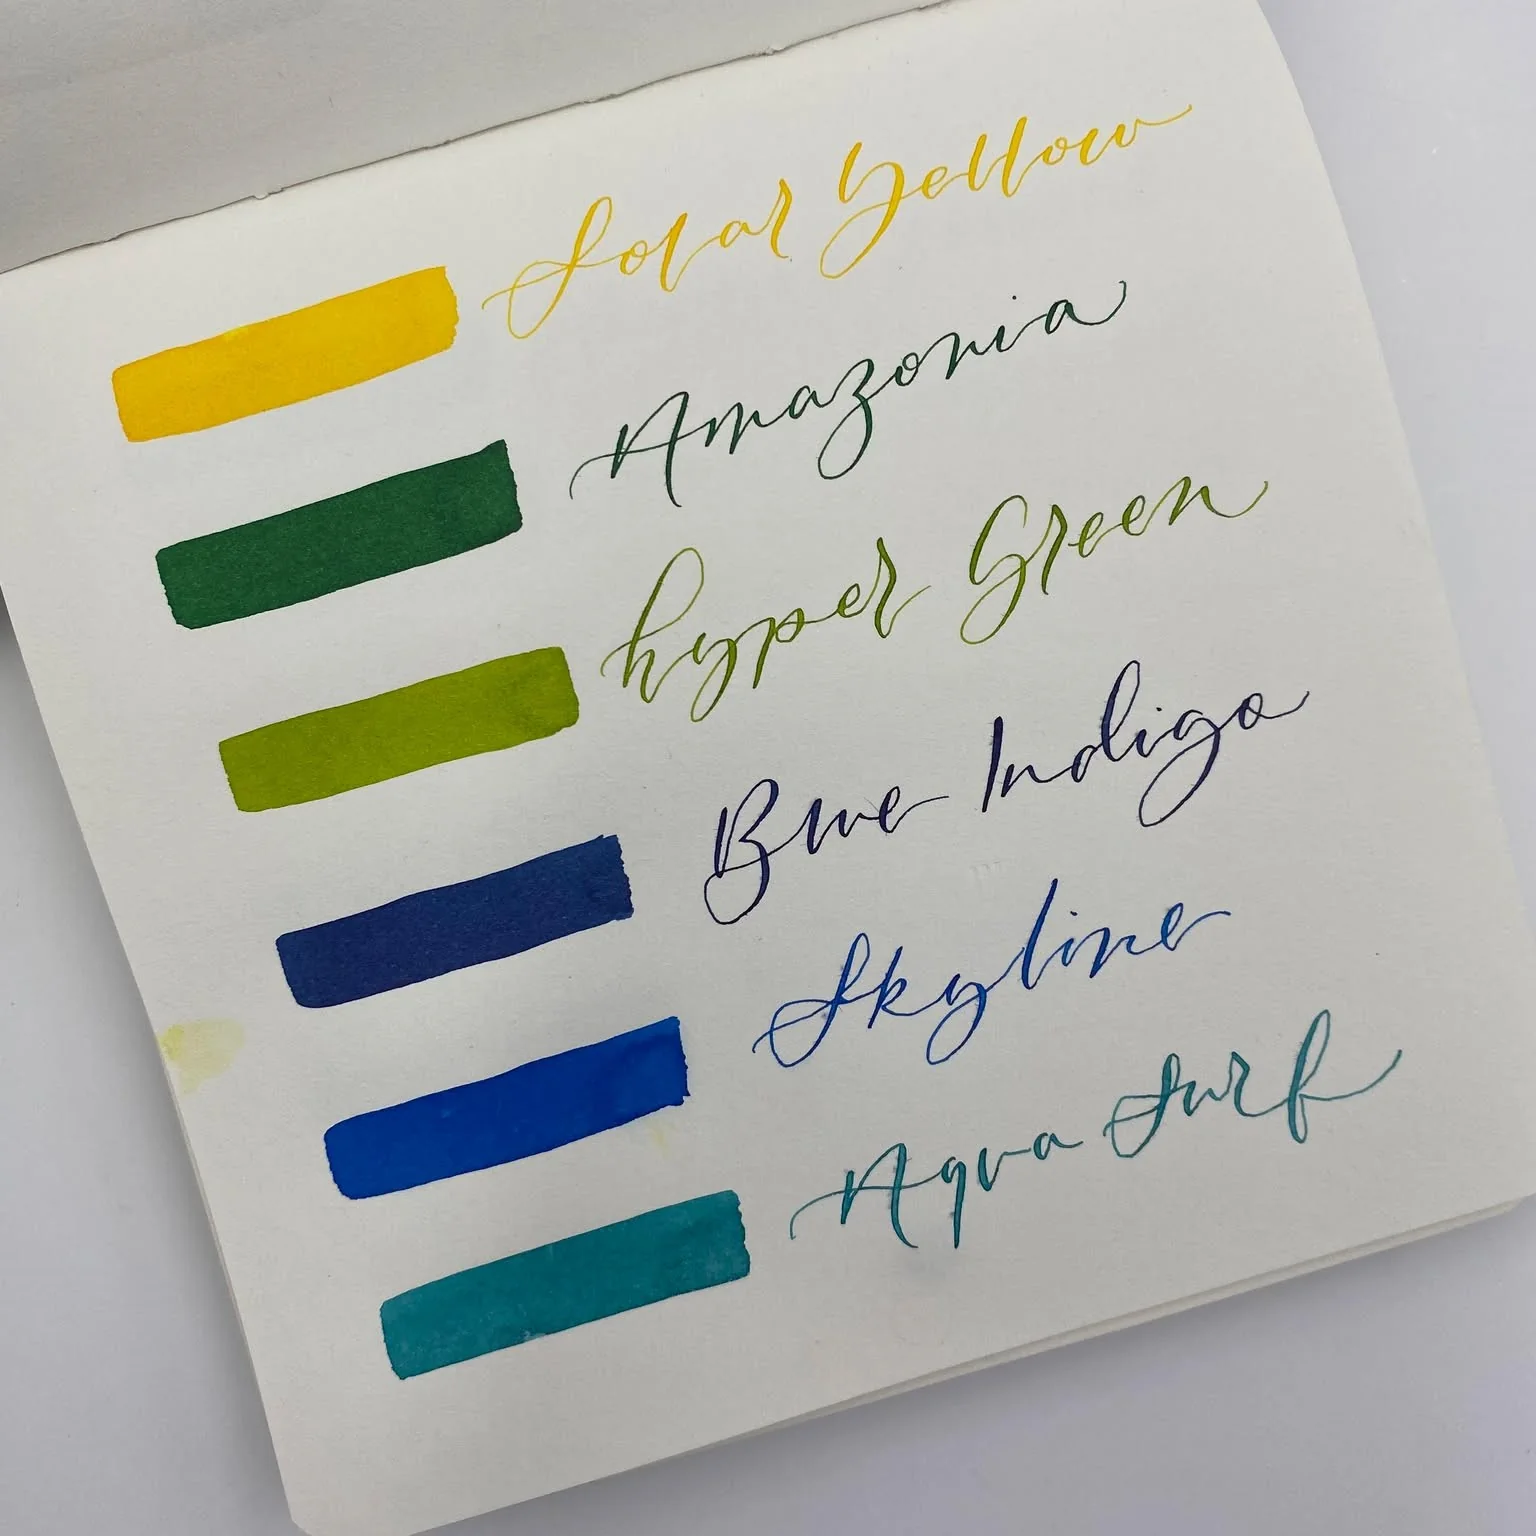 Solar Yellow
Amazonia
hyper Green
Blue Indigo
Skyline
Aqua Surf